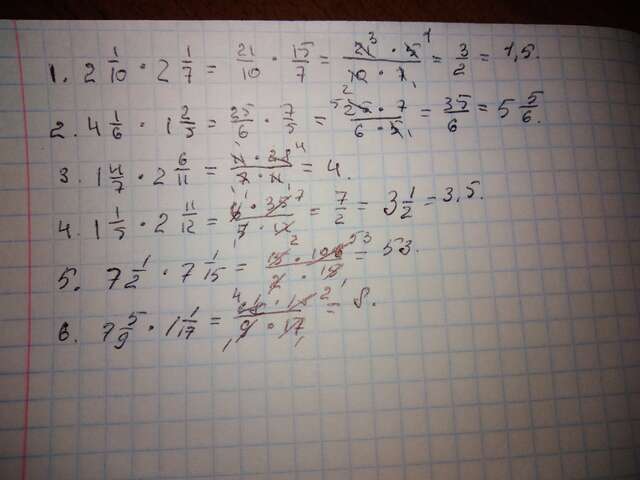 1. 2 1/10 · 2 1/7 = 21/10 · 15/7 = 21 3 · 5 1 / 10 · 7 1 = 3/2 = 1,5.
2. 4 1/6 · 1 2/5 = 25/6 · 7/5 = 5 25 · 7 / 6 · 5 1 = 35/6 = 5 5/6.
3. 1 4/7 · 2 6/11 = 11 1 · 28 4 / 7 1 · 11 1 = 4.
4. 1 1/5 · 2 11/12 = 6 1 · 35 7 / 5 1 · 12 = 7/2 = 3 1/2 = 3,5.
5. 7 1/2 · 7 1/15 = 15 · 106 53 / 2 · 15 = 53.
6. 7 5/9 · 1 1/17 = 4 68 · 18 2 / 9 1 · 17 1 = 8.